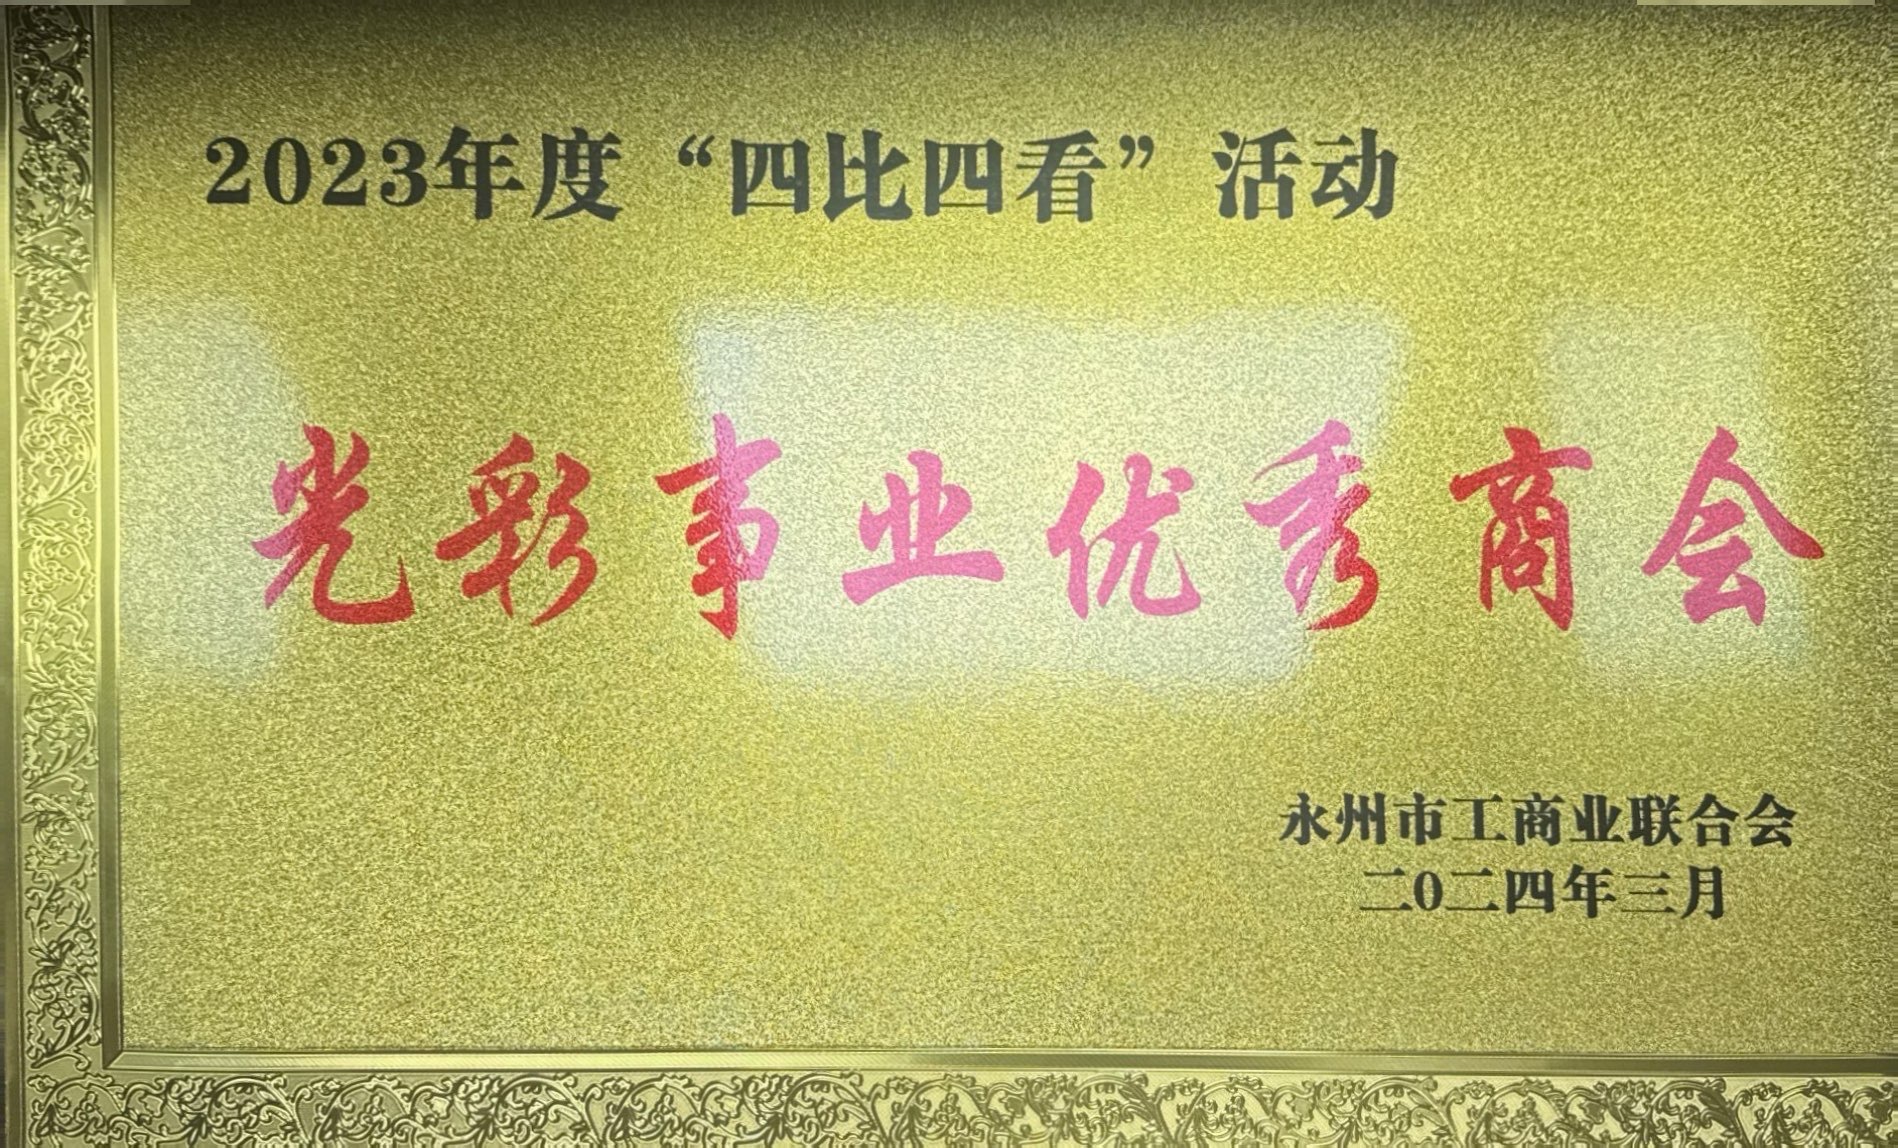 2023年度“四比四看”活动
光彩事业优秀商会
永州市工商业联合会
二0二四年三月